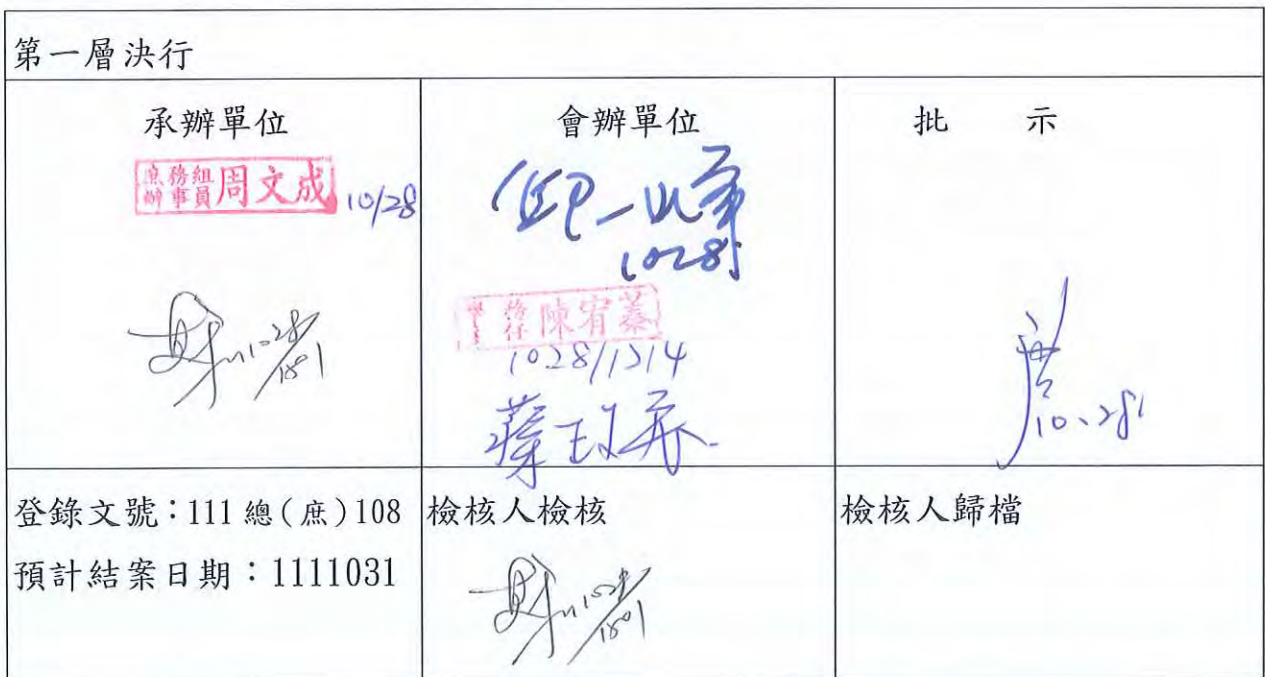 第一層決行
承辦單位
庶務組
辦事員 周文成 10/28
會辦單位
邱一峰
1028
陳宥蓁
1028/1314
批 示
10.28
登錄文號：111 總(庶)108
預計結案日期：1111031
檢核人檢核
檢核人歸檔